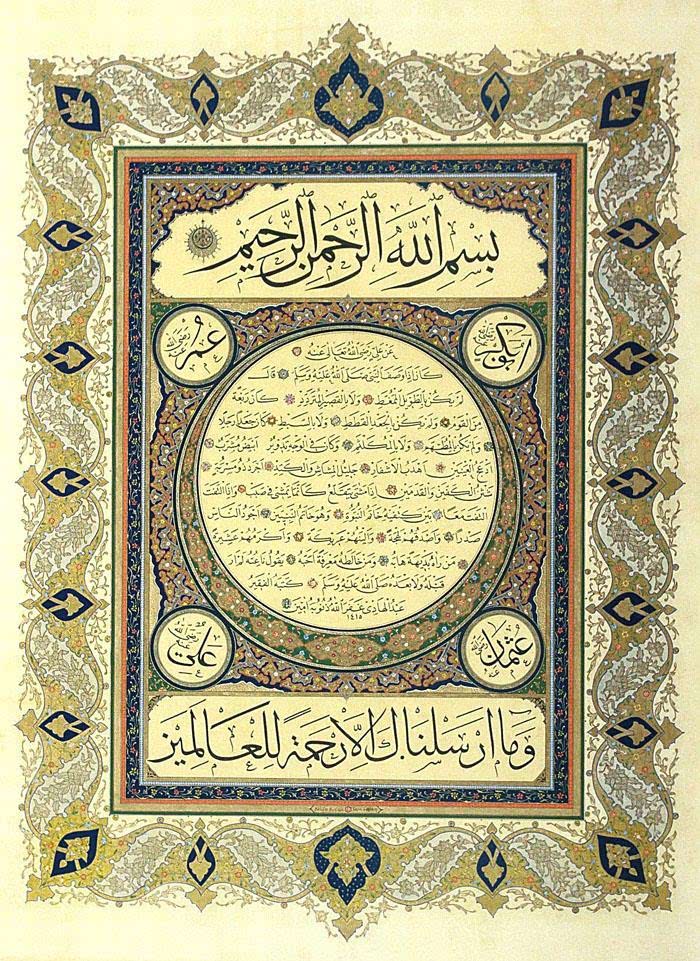 بسم الله الرحمن الرحيم
أبو بكر رضي الله عنه
عمر رضي الله عنه
عن علي رضي الله تعالى عنه
كان إذا وصف النبي صلى الله عليه وسلم قال
لم يكن بالطويل الممغط ولا بالقصير المتردد كان ربعة
من القوم ولم يكن بالجعد القطط ولا بالسبط كان جعدا رجلا
ولم يكن بالمطهم ولا بالمكلثم وكان في الوجه تدوير أبيض مشرب
أدعج العينين أهدب الأشفار جليل المشاش والكتد أجرد ذو مسربة
شثن الكفين والقدمين إذا مشى يتقلع كأنما يمشي في صبب وإذا التفت
التفت معا بين كتفيه خاتم النبوة وهو خاتم النبيين أجود الناس
صدرا وأصدقهم لهجة وألينهم عريكة وأكرمهم عشيرة
من رآه بديهة هابه ومن خالطه معرفة أحبه يقول ناعته لم أر
قبله ولا بعده صلى الله عليه وسلم كتبه الفقير
عبد الهادي غفر الله ذنوبه آمين
١٤١٥
عثمان رضي الله عنه
علي رضي الله عنه
وما أرسلناك إلا رحمة للعالمين